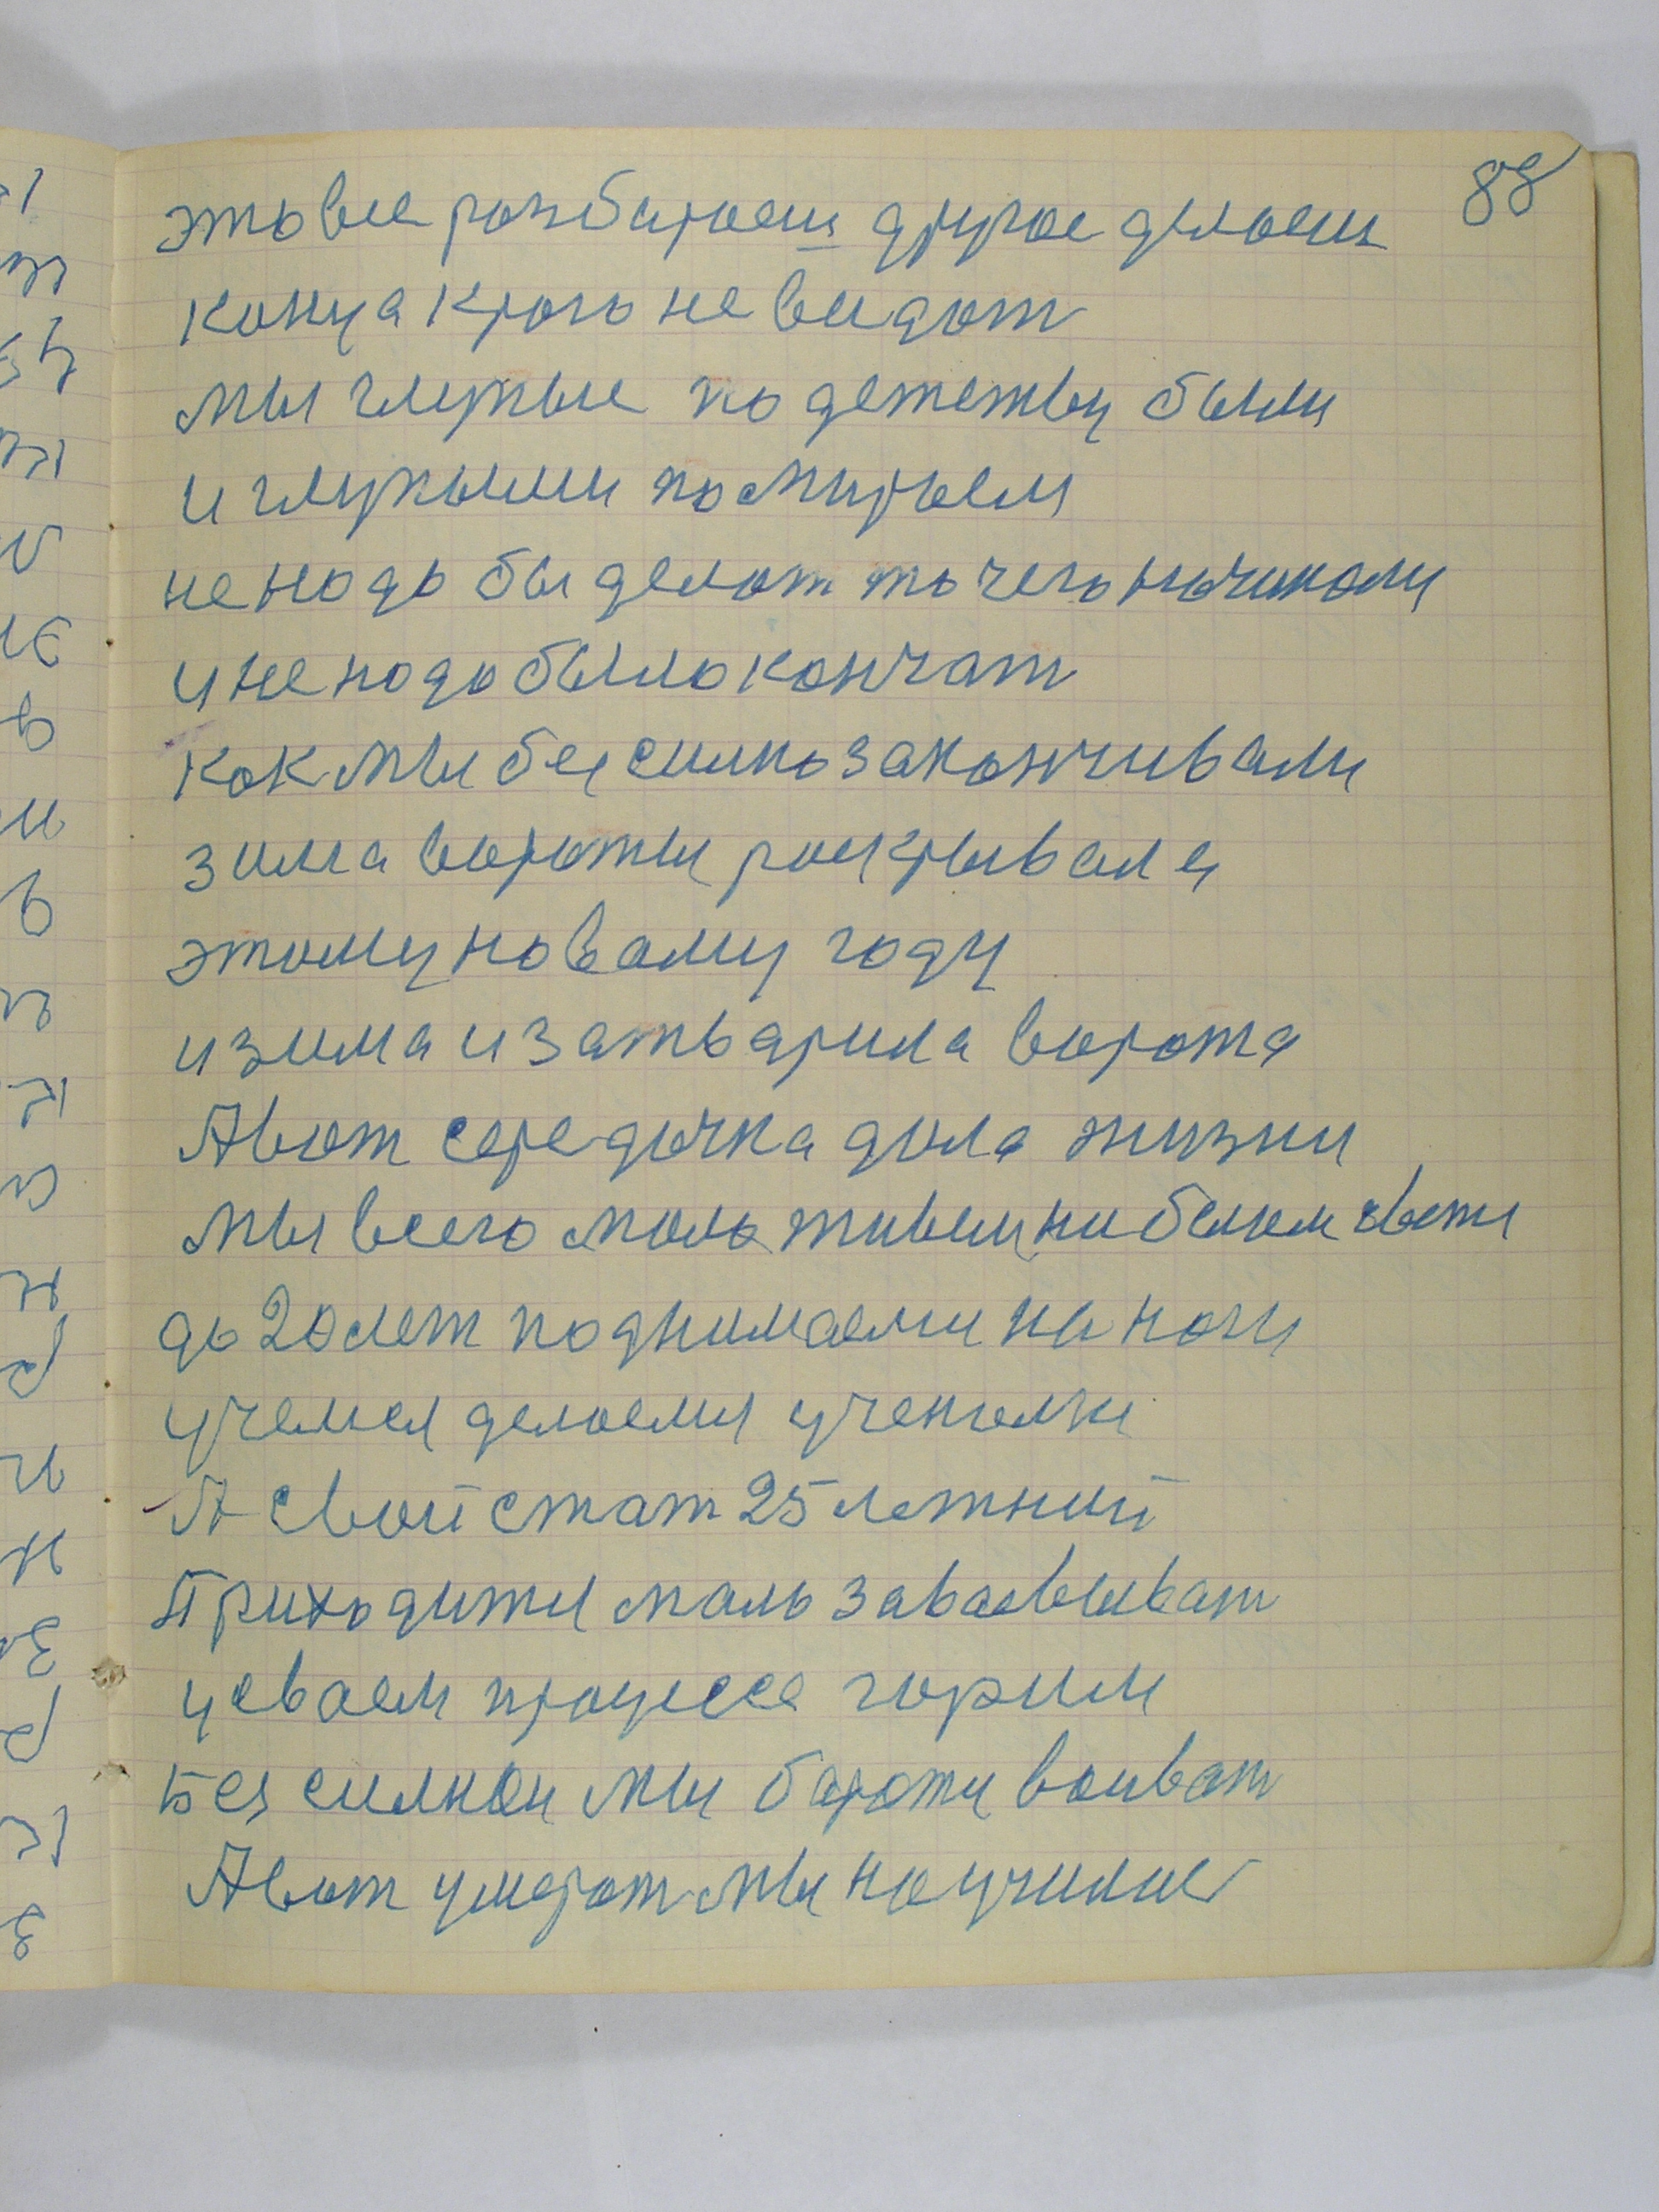 88
это все розбираеш другое делоеш
конца крою не видат
мы глупые по детежву были
и глупыми помираем
не нодо бы делот то чего ночиноли
и не нодо было кончат
кок мы бессилно заканчивали
зима вороты роскрывала
этому новаму году
и зима и затварила ворота
Авот середочка дола жизни
мы всего мало живем на белом свети
до 20 лет подnимаемси наноги
учемся делоемся учеными
А свой стат 25 летний
Приходитси мало заваевыват
усваем процессе горим
Без силнои мы бароти воиват
Авот умерат мы научилис